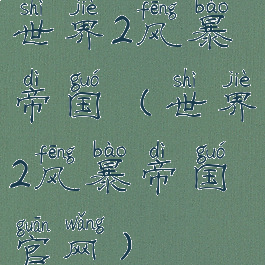 shì jiè fēng bào
世界2风暴
dì guó shì jiè
帝国(世界
fēng bào dì guó
2风暴帝国
guān wǎng
官网)